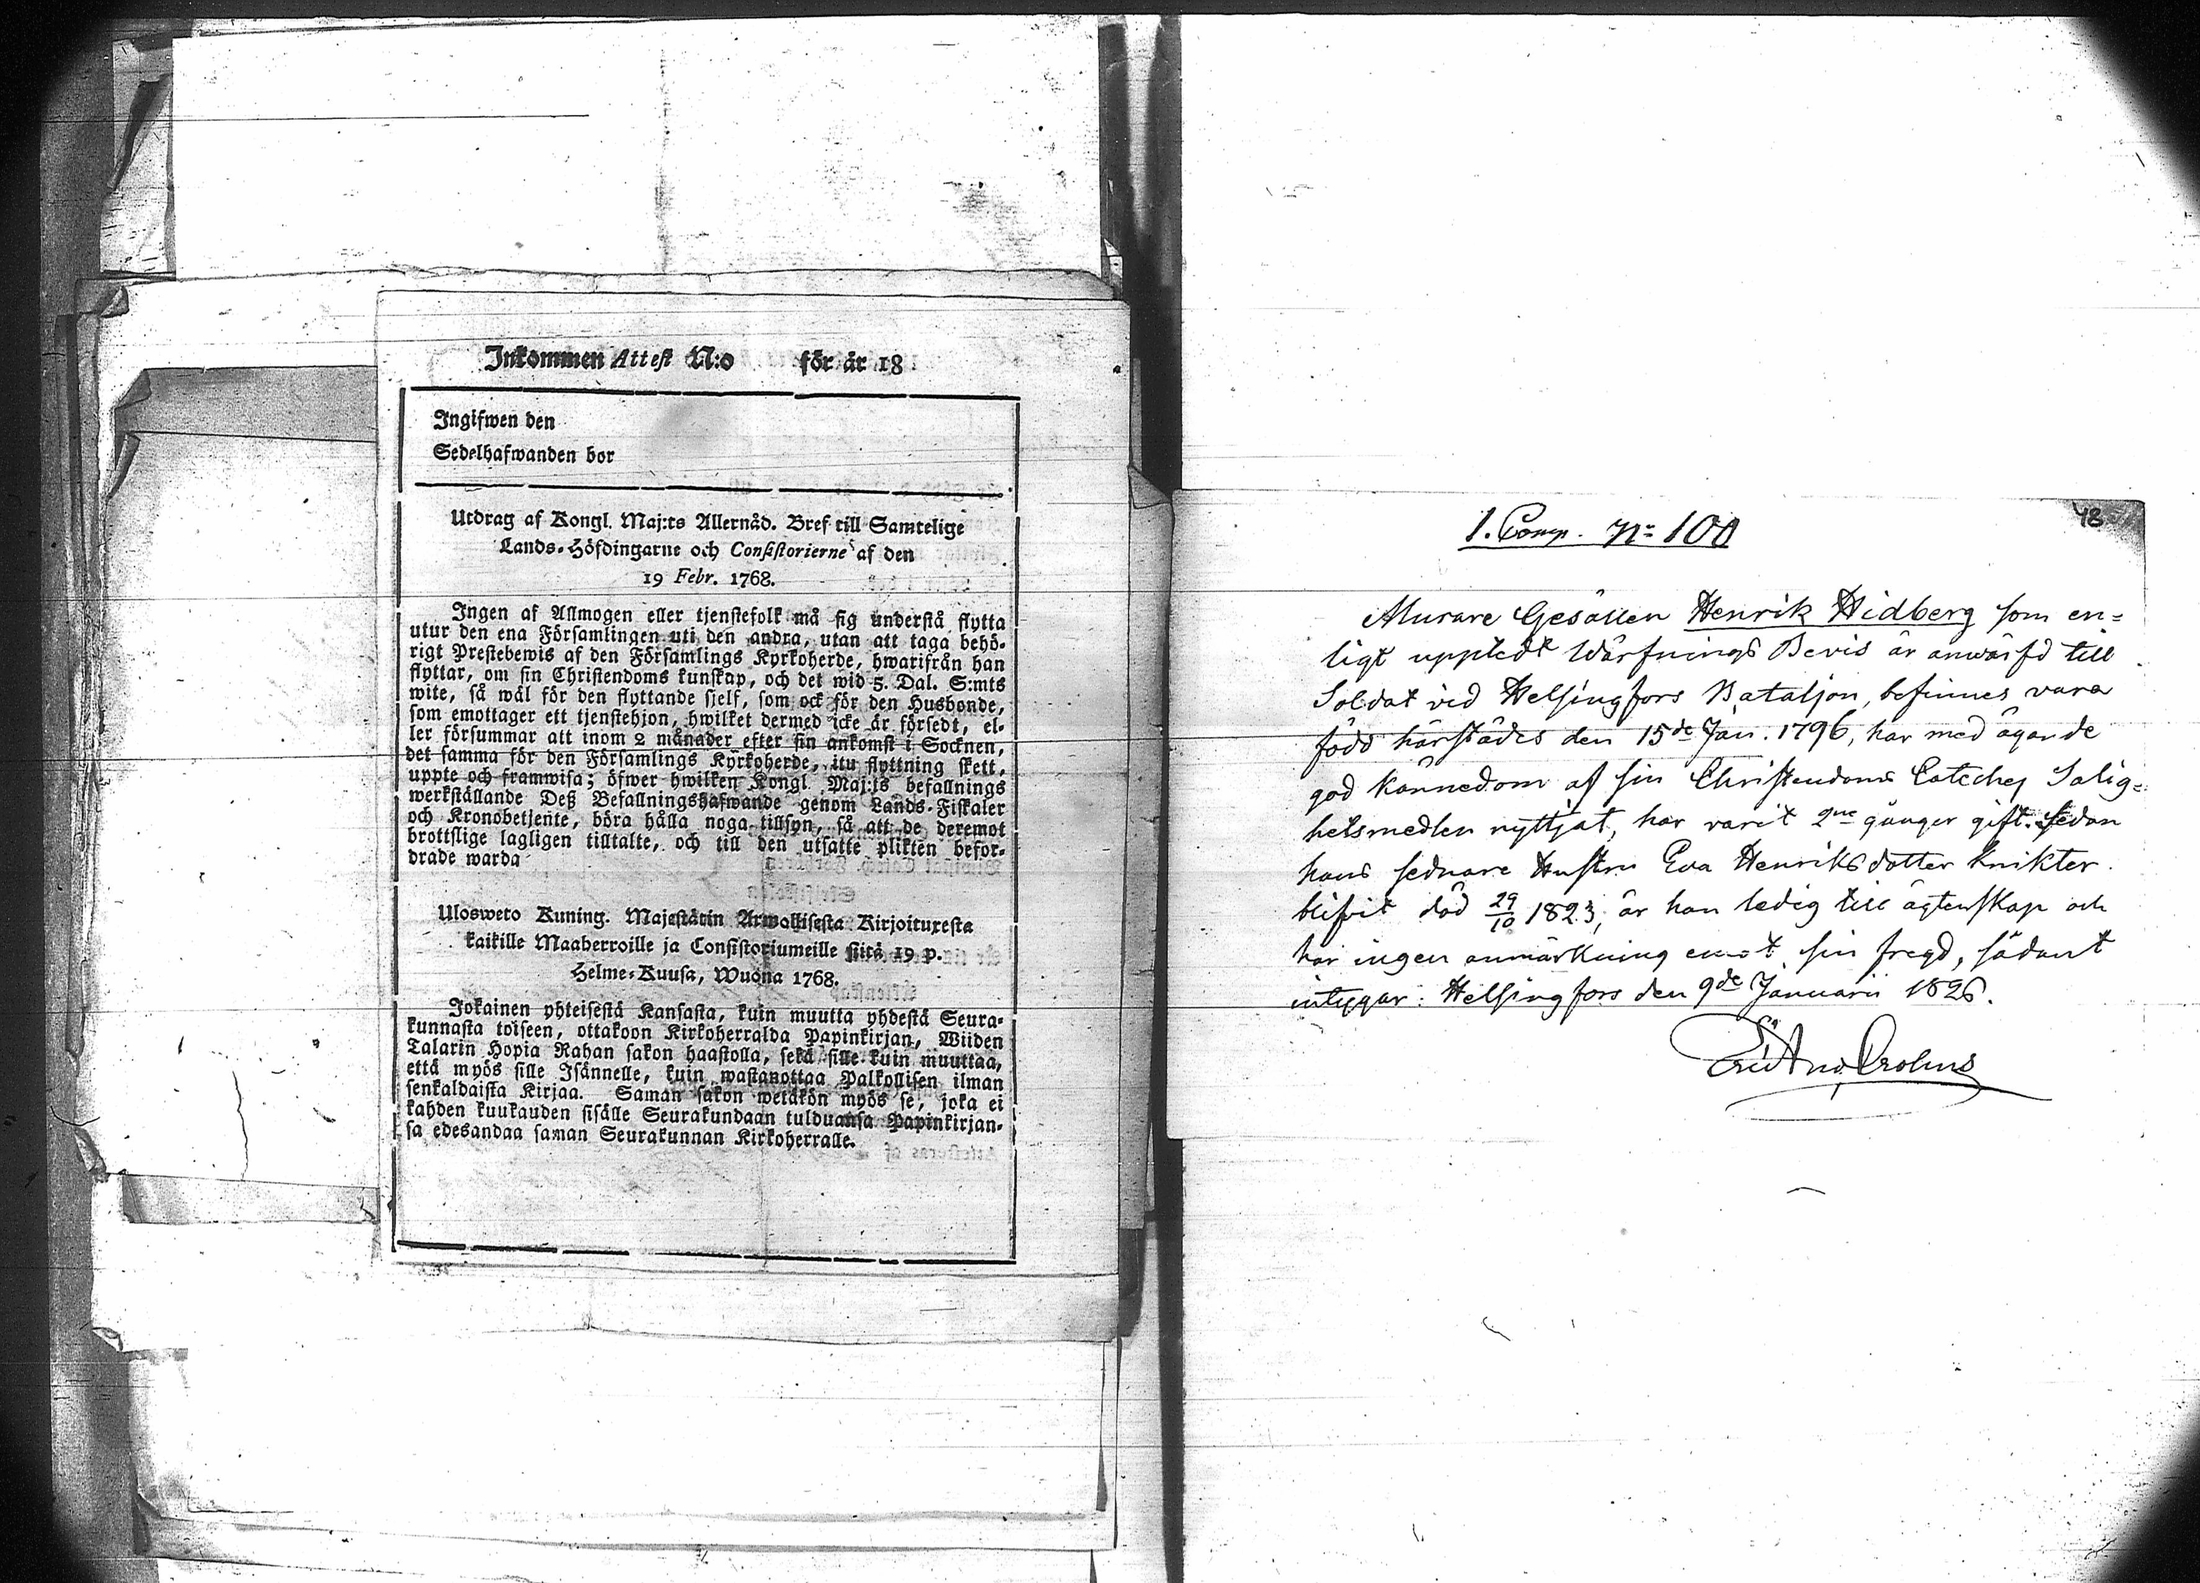 Inkommen Attest N:o för år 18
Ingifwen den
Sedelhafwanden bor
Utdrag af Kongl. Maj:ts Allernåd. Bref till Samtelige
Lands-Höfdingarne och Consistorierne af den
19 Febr. 1768.
Ingen af Allmogen eller tjenstefolk må sig understå flytta
utur den ena Församlingen uti den andra, utan att taga behö-
rigt Prestebewis af den Församlings Kyrkoherde, hwarifrån han
flyttar, om sin Christendoms kunskap, och det wid 5. Dal. S:mts
wite, så wäl för den flyttande sjelf, som ock för den Husbonde,
som emottager ett tjenstehjon, hwilket dermed icke är försedt, el-
ler försummar att inom 2 månader efter sin ankomst i Socknen,
det samma för den Församlings Kyrkoherde, itu flyttning skett,
uppte och framwisa; öfwer hwilken Kongl. Maj:ts befallnings
werkställande Deß Befallningshafwande genom Lands-Fiskaler
och Kronobetjente, böra hålla noga tillsyn, så att de deremot
brottslige lagligen tilltalte, och till den utsatte plikten befor-
drade warda
Ulosweto Kuning. Majestätin Armollisesta Kirjoituxesta
kaikille Maaherroille ja Consistoriumeille siitä 19 p.
Helme-Kuusa, Wuona 1768.
Jokainen yhteisestä Kansasta, kuin muutta yhdestä Seura-
kunnasta toiseen, ottakoon Kirkoherralda Papinkirjan, Wiiden
Talarin Hopia Rahan sakon haastolla, sekä sille kuin muuttaa,
että myös sille Isännelle, kuin wastanottaa Palkollisen ilman
senkaldaista Kirjaa. Saman sakon wetäkön myös se, joka ei
kahden kuukauden sisälle Seurakundaan tulduansa Papinkirjan-
sa edesandaa saman Seurakunnan Kirkoherralle.
48
1. Comp. No 100
Murare Gesällen Henrik Hidberg som en-
ligt uppledt Wärfnings Bevis är anwärfd till
Soldat vid Helsingfors Bataljon, befinnes vara
född härstädes den 15de Jan. 1796, har med ägande
god kännedom af sin Christendoms Cateches Salig-
hetsmedlen nyttjat, har varit 2ne gånger gift. Sedan
hans sednare Hustru Eva Henriksdotter Knikter
blifvit död 29/10 1823, är han ledig till ägtenskap och
har ingen anmärkning emot sin fregd, sådant
intygar: Helsingfors den 9de Januarii 1826.